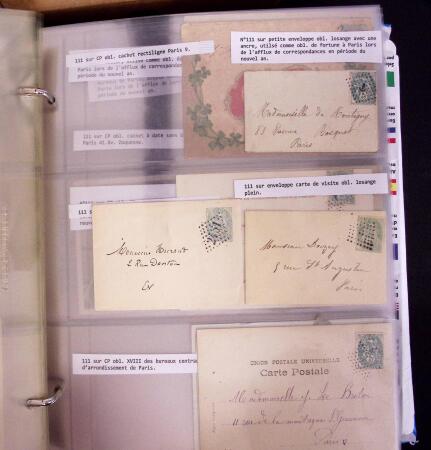 111 sur CP obl. cachet rectiligne Paris 9.
Paris lors de l'afflux de correspondan
période du nouvel an.
N°111 sur petite enveloppe obl. losange avec une
ancre, utilsé comme obl. de fortune à Paris lors
de l'afflux de correspondances en période du
nouvel an.
111 sur CP obl. cachet à date sans
Paris
Mademoiselle de Montigny
53 Avenue Bosquet
Paris
111 sur enveloppe carte de visite obl. losange
plein.
111 su
Monsieur
2 Rue Danton
EV
Monsieur
8 rue St Augustin
Paris
111 sur CP obl. XVIII des bureaux centra
d'arrondissement de Paris.
UNION POSTALE UNIVERSELLE
Carte Postale
Mademoiselle J. Le Breton
11 rue de la montagne Ste Geneviève
Paris